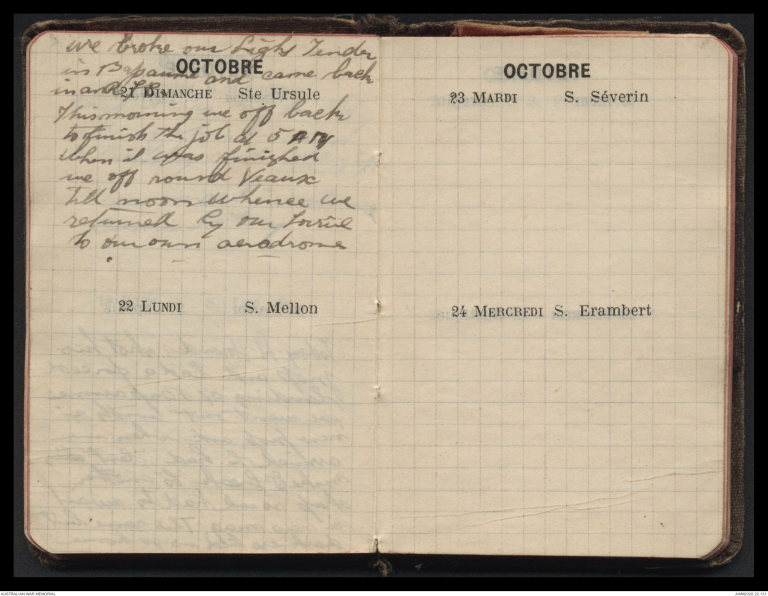 we broke our Light Tender
OCTOBRE
in Bapaume and came back
in an R.F.C.
21 DIMANCHE Ste Ursule
This morning we off back
to finish the job at 5 AM
when it was finished
we off round Veaux
till noon whence we
returned by our Lorrie
to our own aerodrome
22 LUNDI S. Mellon
OCTOBRE
23 MARDI S. Séverin
24 MERCREDI S. Erambert
AUSTRALIAN WAR MEMORIAL